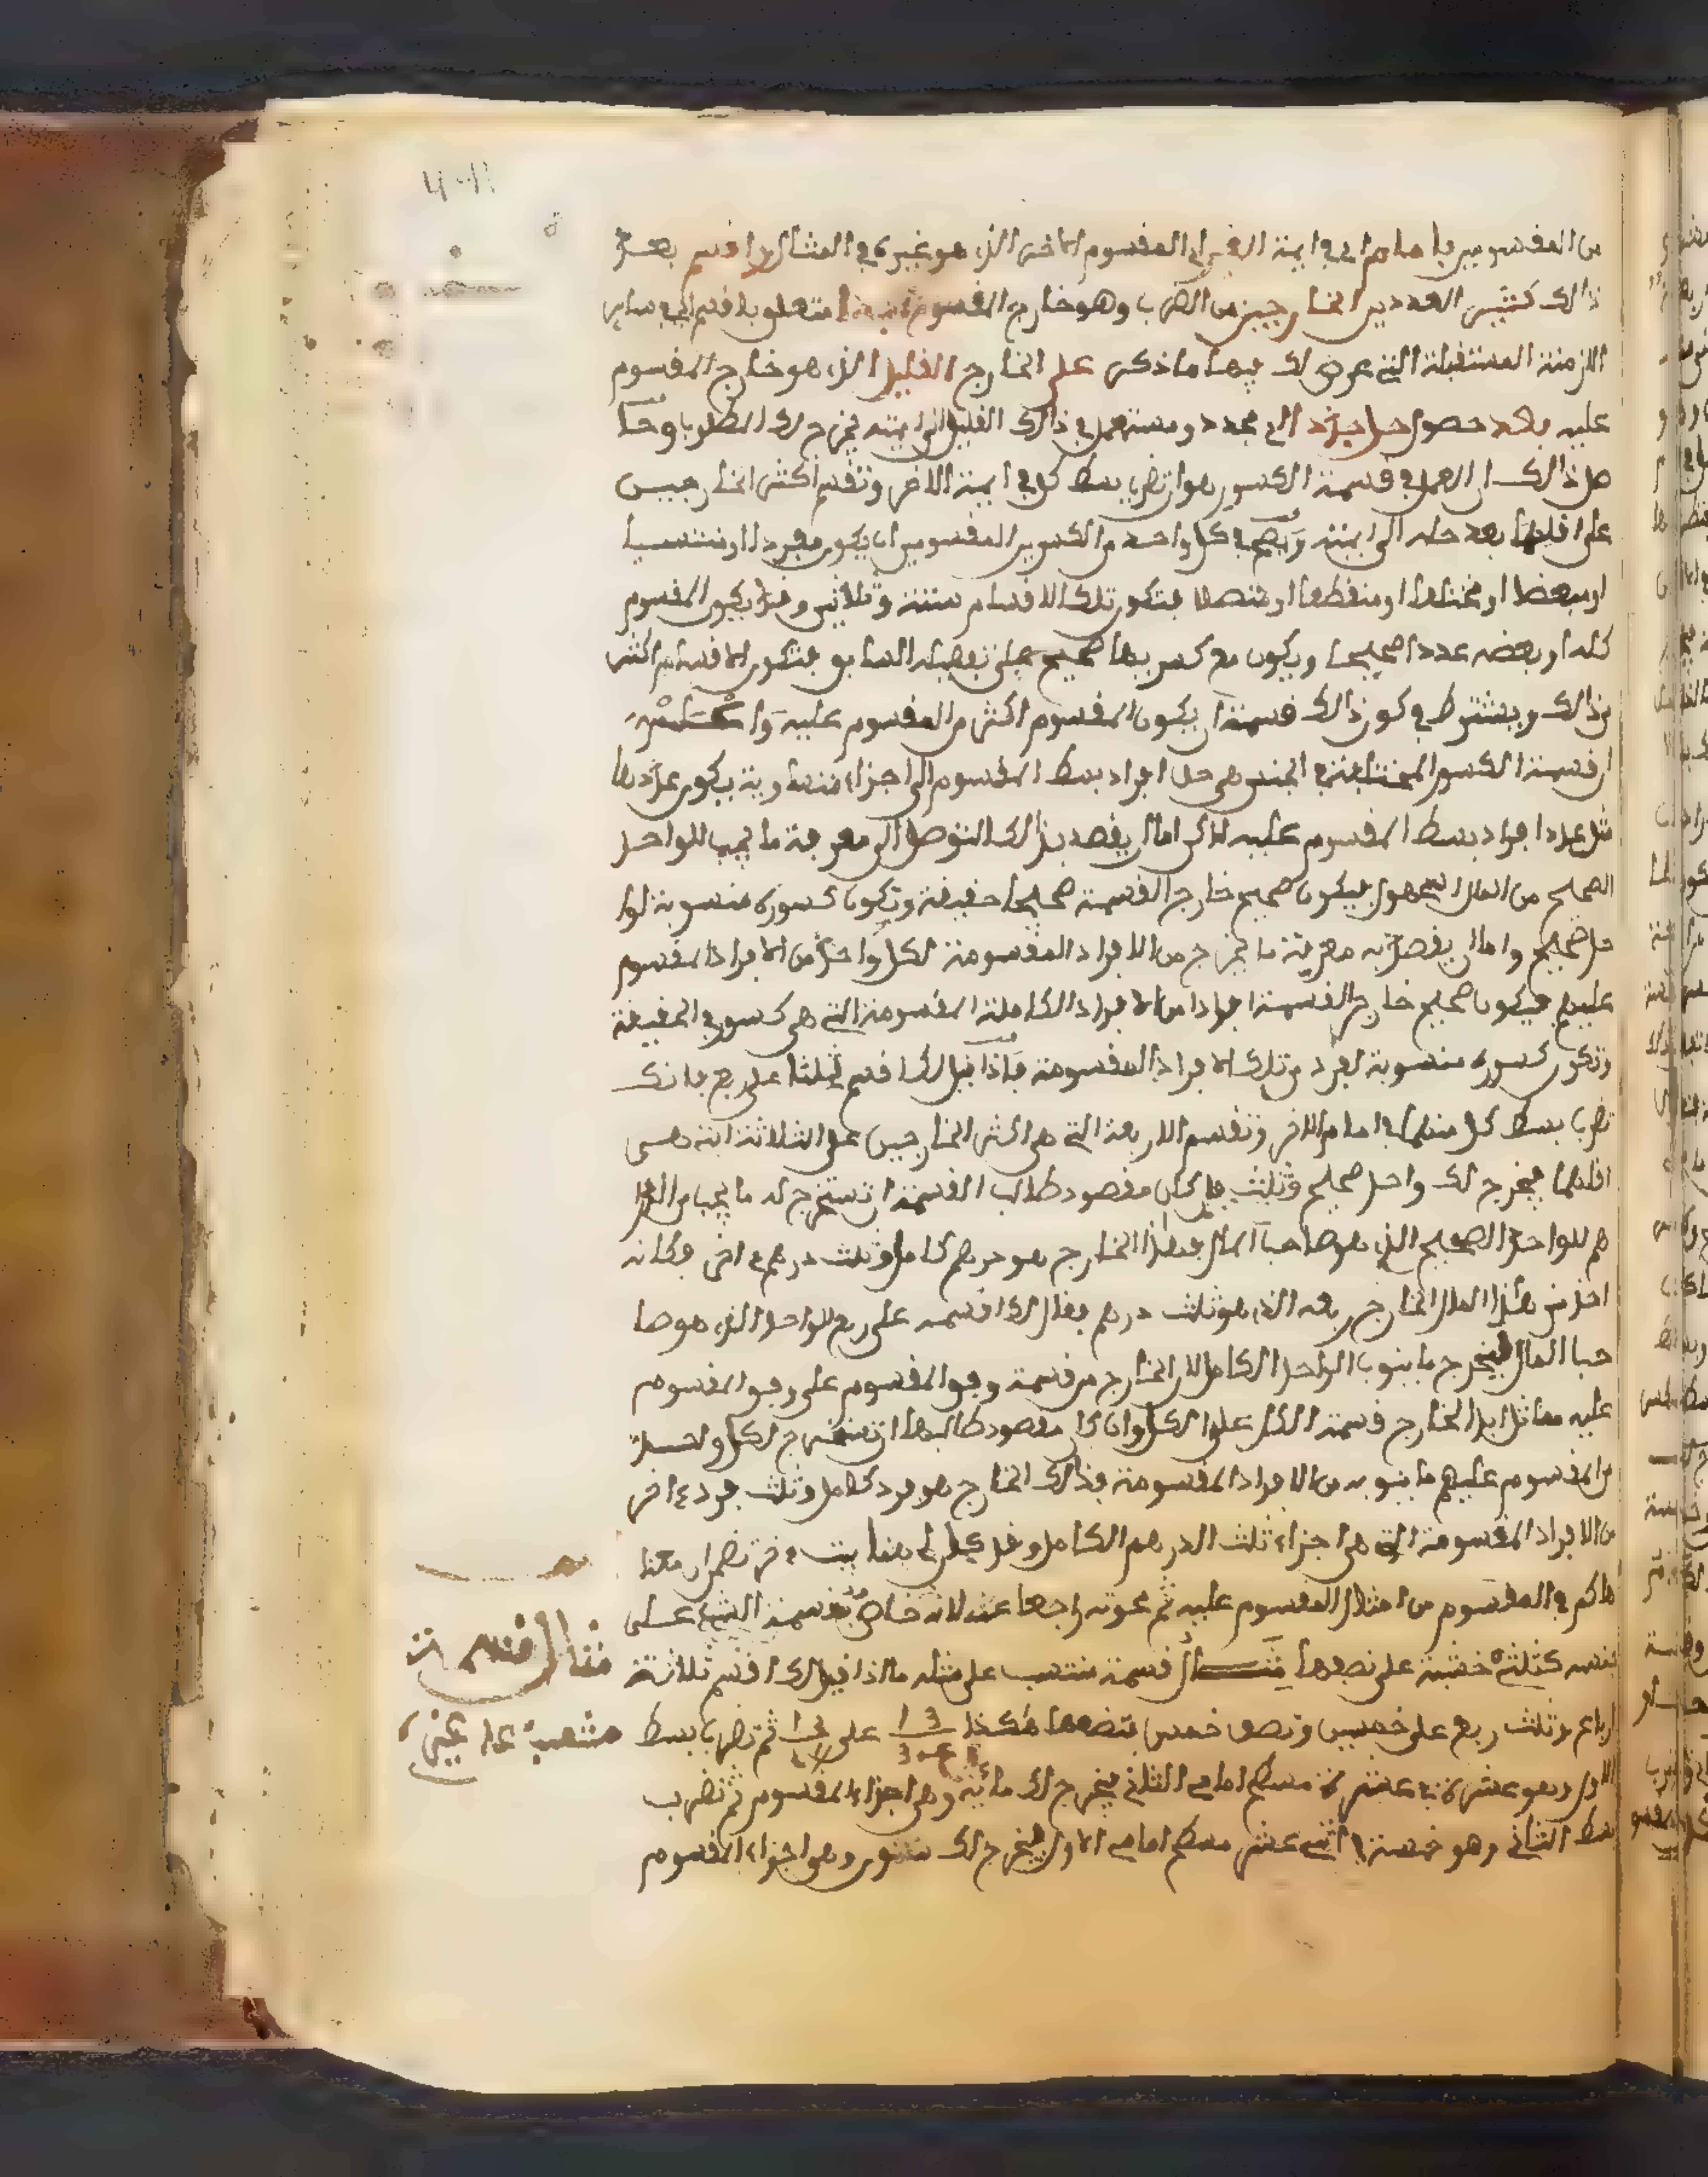 من المقسومين بامام اي في ايمة الغير اي المقسوم الاخر الذي هو غيره في المثال واقسم بعد
ذالك كثير العددين الخارجين من الضرب وهو خارج المقسوم متعلق باقسم اي في ساير
الازمنة المستقبلة التي عرض لك فيها ما ذكر على الخارج القليل الذي هو خارج المقسوم
عليه بعد حصول حل جزء الى محدد ومستعمل في ذالك القليل الى ايمته يخرج لك المطلوب وحا
صل ذالك ان العمل في قسمة الكسور هو ان تضرب بسط كل في ايمة الاخر وتقسم اكثر الخارجين
على اقلهما بعد حله الى ايمته ويصح في كل واحد من الكسرين المقسومين ان يكون مفردا او منتسبا
او مبعضا او مختلفا او منقطعا او متصلا فتكون تلك الاقسام ستة وثلاثين وقد يكون المقسوم
كله او بعضه عددا صحيحا ويكون مع كسر بها صحيح على تفصيله السابق فتكون الاقسام اكثر
من ذالك ويشترط في كون ذالك قسمة ان يكون المقسوم اكثر من المقسوم عليه واعلم
ان قسمة الكسور المختلفة في الجنس هي حل افراد بسط المقسوم الى اجزاء متساوية يكون عددها
مثل عدد افراد بسط المقسوم عليه لاكن اما ان يقصد بذالك التوصل الى معرفة ما يجب للواحد
الصحيح من المال المجهول فيكون صحيح خارج القسمة صحيحا حقيقة وتكون كسوره منسوبة لوا
حد صحيح واما ان يقصد به معرفة ما يخرج من الافراد المقسومة لكل واحد من الافراد المقسوم
عليهم فيكون صحيح خارج القسمة افرادا من الافراد الكاملة المقسومة التي هي كسور في الحقيقة
وتكون كسوره منسوبة لفرد من تلك الافراد المقسومة فاذا قيل لك اقسم ثلثا على ربع فانك
تضرب بسط كل منهما في امام الاخر وتقسم الاربعة التي هي اكثر الخارجين على الثلاثة التي هي
اقلهما فيخرج لك واحد صحيح وثلث فان كان مقصود طالب القسمة ان تستخرج له ما يجب من الدرا
هم للواحد الصحيح الذي هو صاحب المال فهذا الخارج هو درهم كامل وثلث درهم اخر فكانه
اخذ من هذا المال الخارج ربعه الذي هو ثلث درهم فقال لك اقسمه على ربع للواحد الذي هو صا
حب المال ليخرج ما ينوب الواحد الكامل لان الخارج من قسمة وفق المقسوم على وفق المقسوم
عليه مماثل ابدا لخارج قسمة الكل على الكل وان كان مقصود طالبها ان تستخرج لكل واحد
من المقسوم عليهم ما ينوبه من الافراد المقسومة فذالك الخارج هو فرد كامل وثلث فرد اخر
من الافراد المقسومة التي هي اجزاء ثلث الدرهم الكامل
ما كم في المقسوم من امثال المقسوم عليه ثم
نفسه كثلثي خشبة على نصفها مثال قسمة منتسب على مثله ما اذا قيل لك اقسم ثلاثة
ارباع وثلث ربع على خمسين ونصف خمس فتضعها هكذا على ثم تضرب بسط
الاول وهو عشرة في عشرة مسطح امامي الثاني يخرج لك مائة وهي اجزاء المقسوم ثم تضرب
بسط الثاني وهو خمسة في اثني عشر مسطح امامي الاول فيخرج لك ستون وهو اجزاء المقسوم
مثال قسمة
منتسب على